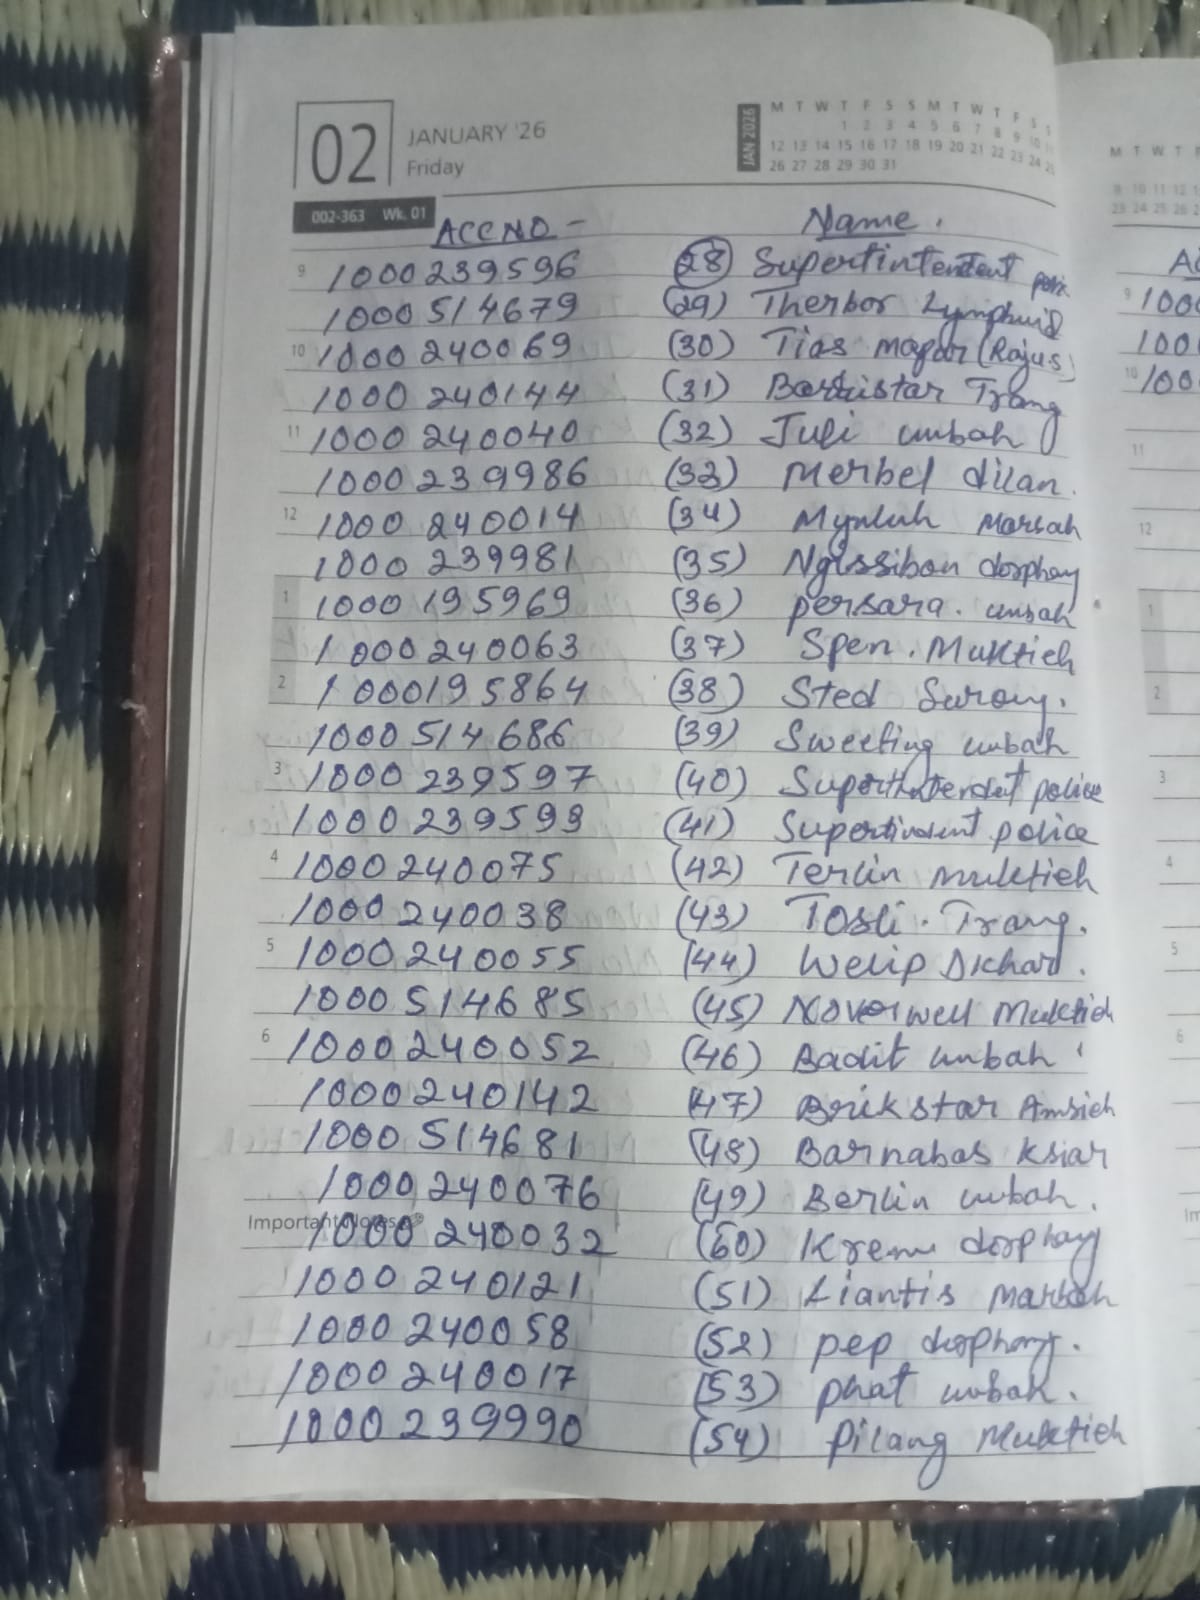 02 JANUARY '26
Friday
JAN 2026
M T W T F S S M T W T F S S
1 2 3 4 5 6 7 8 9 10 11
12 13 14 15 16 17 18 19 20 21 22 23 24 25
26 27 28 29 30 31
002-363 Wk. 01
ACCNO - Name.
9 1000239596 (28) Supertintentent
1000514679 (29) Therbor
10 1000240069 (30) Tias mapar (Rajus)
1000240144 (31) Barkistar Trang
11 1000240040 (32) Juli umbah
1000239986 (33) Merbel dilan.
12 1000240014 (34) Mynluh Marbah
1000239981 (35) Ngissibon dorphang
1 1000195969 (36) persara. umbah
1000240063 (37) Spen. Muktieh
2 1000195864 (38) Sted Surong.
1000514686 (39) Sweeting umbah
3 1000239597 (40) police
1000239599 (41) police
4 1000240075 (42) Terlin muktieh
1000240038 (43) Tosli. Trang.
5 1000240055 (44) Welip Dkhar.
1000514685 (45) Noverwell Muktieh
6 1000240052 (46) Badit umbah
1000240142 (47) Brikstar Amsieh
1000514681 (48) Barnabas Ksiar
1000240076 (49) Berlin umbah.
Important Notes
1000240032 dorphang
1000240121 (51) Liantis Marbah
1000240058 (52) pep dorphang.
1000240017 (53) phat umbah.
1000239990 (54) Pilang Muktieh